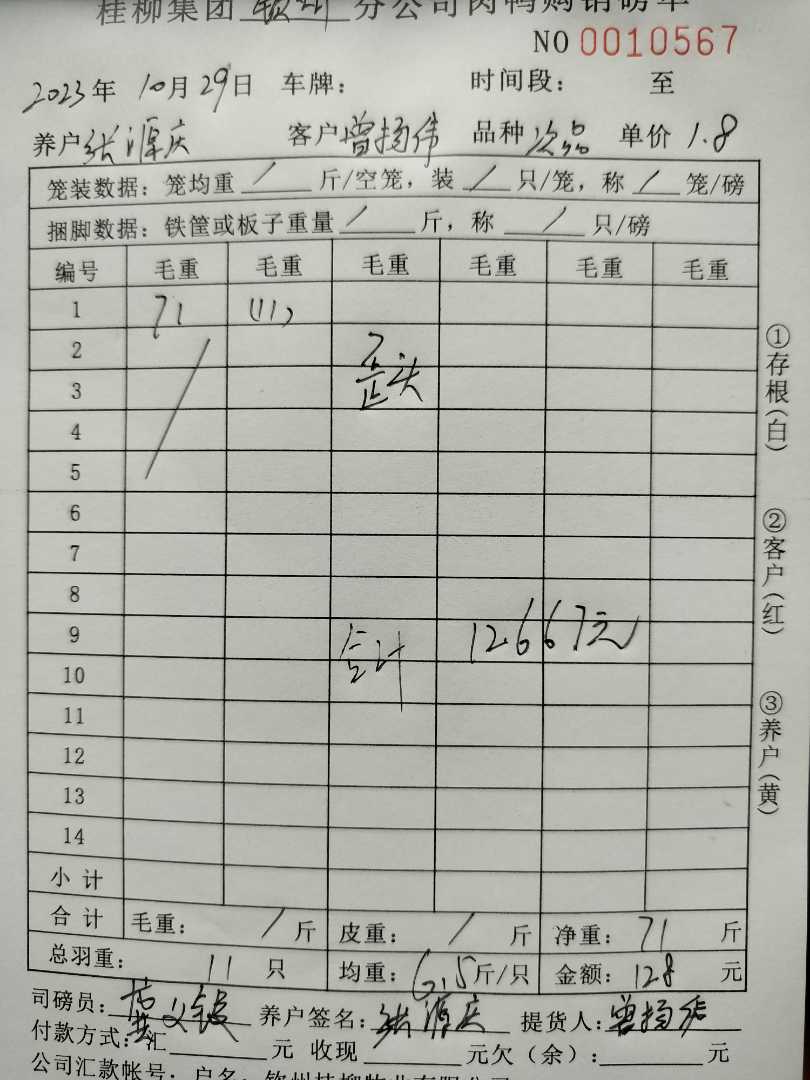 桂柳集团 钦州 分公司肉鸭购销磅单
NO 0010567
2023年 10月29日 车牌： 时间段： 至
养户 张源庆 客户 曾扬伟 品种 次品 单价 1.8
笼装数据：笼均重 / 斤/空笼，装 / 只/笼，称 / 笼/磅
捆脚数据：铁筐或板子重量 / 斤，称 / 只/磅
编号 毛重 毛重 毛重 毛重 毛重 毛重
1 71 (11)
2
歪头
3
4
5
6
7
8
9 合计 12667元
10
11
12
13
14
小计
合计 毛重： / 斤 皮重： / 斤 净重： 71 斤
总羽重： 11 只 均重： 6.5 斤/只 金额： 128 元
司磅员： 养户签名： 张源庆 提货人： 曾扬伟
付款方式：汇 元 收现 元欠（余）： 元
公司汇款帐号：户名：钦州桂柳牧业有限公司
①存根（白）
②客户（红）
③养户（黄）